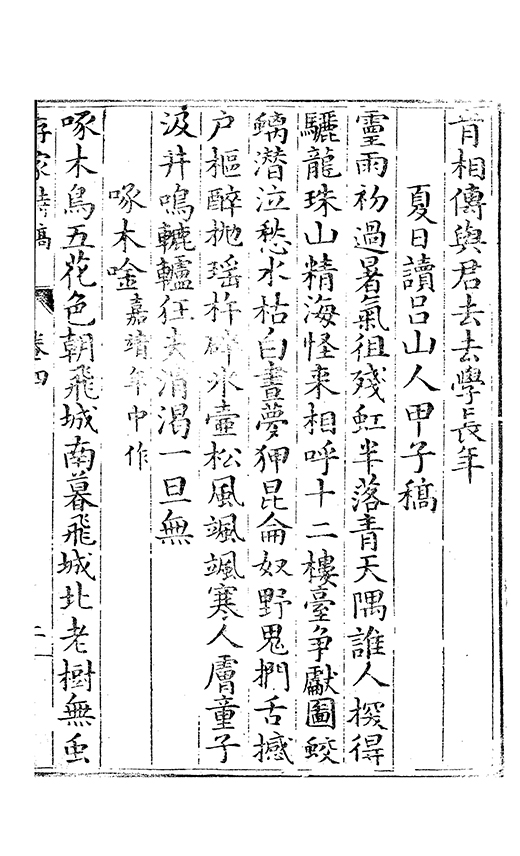 肯相傳與君去去學長年
夏日讀呂山人甲子稿
靈雨初過暑氣徂殘虹半落青天隅誰人探得
驪龍珠山精海怪來相呼十二樓臺爭獻圖鮫
螭潛泣愁水枯白晝夢狎昆侖奴野鬼捫舌撼
户樞醉抛瑶杵碎氷壷松風颯颯寒人膚童子
汲井鳴轆轤狂夫消渴一旦無
啄木唫嘉靖年中作
啄木鳥五花色朝飛城南暮飛城北老樹無䖝
存家詩稿
卷四